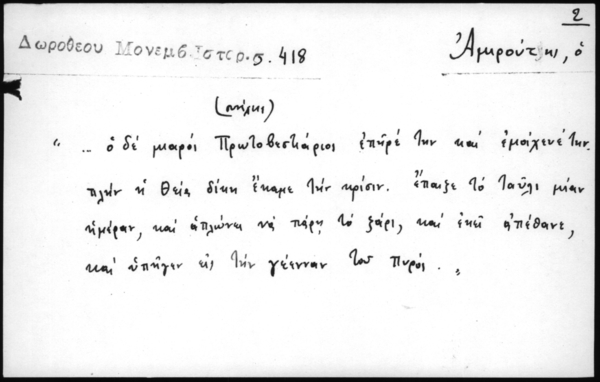 2
Δωροθεου Μονεμβ. Ιστορ. σ. 418
Ἀμιρούτζης, ὁ
„ ... ὁ δέ μιαρός Πρωτοβεστιάριος ἐπῆρέ την καί ἐμοίχενέ την.
πλήν ἡ θεία δίκη ἔκαμε τήν κρίσιν. ἔπαιξε τό ταῦλι μίαν
ἡμέραν, καί ἁπλώνει νά πάρῃ τό ζάρι, καί ἐκεῖ ἀπέθανε,
καί ὑπῆγεν εἰς τήν γέενναν τοῦ πυρός. „